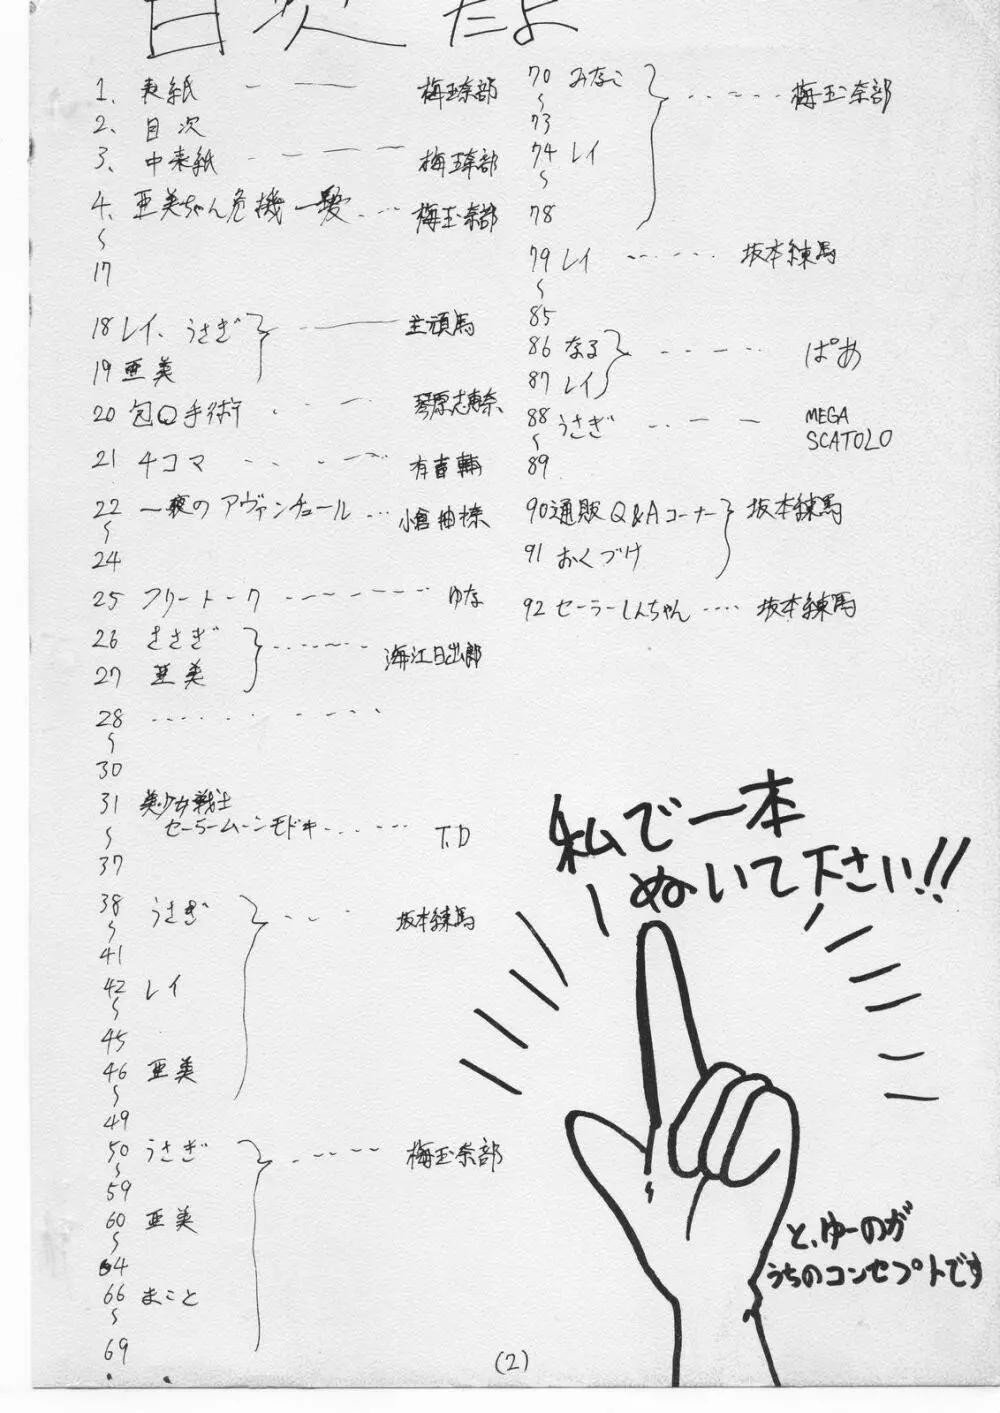 目次だよ
1、表紙 梅玉奈部
2、目次
3、中表紙 梅玉奈部
4、亜美ちゃん危機一髪 梅玉奈部
〜
17
18 レイ、うさぎ 主頑馬
19 亜美
20 包Q手術 琴原志恵奈
21 4コマ
22 一夜のアヴァンチュール
〜
24
25 フリートーク ゆな
26 うさぎ 海江日出郎
27 亜美
28
〜
30
31 美少女戦士
〜 セーラームーンモドキ T.D
37
38 うさぎ 坂本練馬
〜
41
42 レイ
〜
45
46 亜美
〜
49
50 うさぎ 梅玉奈部
〜
59
60 亜美
〜
64
66 まこと
〜
69
70 みなこ 梅玉奈部
〜
73
74 レイ
〜
78
79 レイ 坂本練馬
〜
85
86 なる ぱあ
87 レイ
88 うさぎ MEGA
〜 SCATOLO
89
90 通販Q&Aコーナー 坂本練馬
91 おくづけ
92 セーラーしんちゃん 坂本練馬
私で一本
ぬいて下さい!!
と、ゆーのが
うちのコンセプトです
(2)